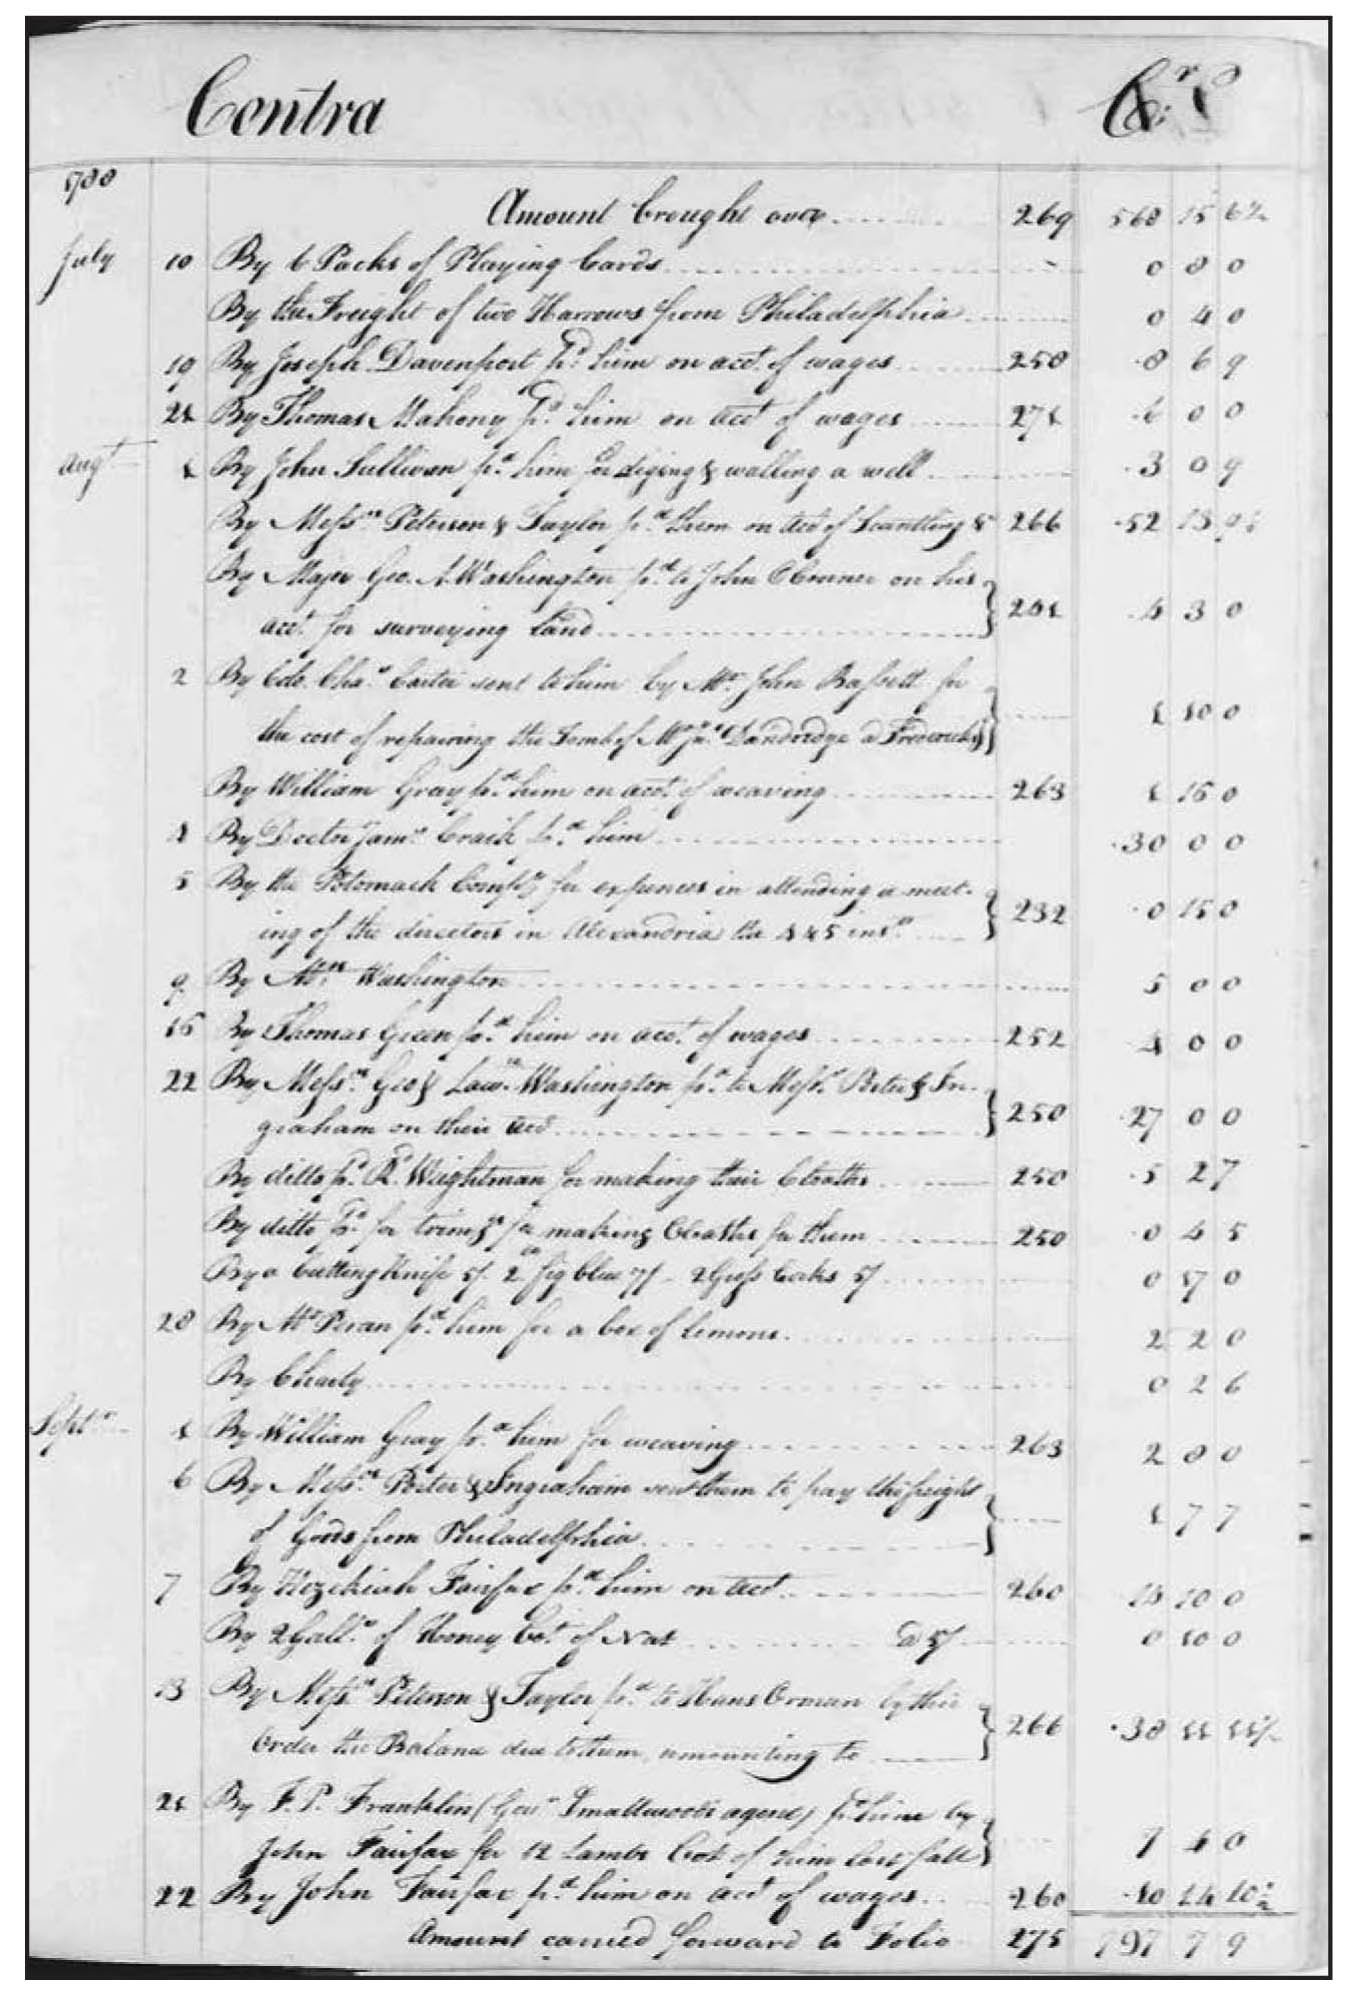 Contra Cr
1788
Amount brought over 269 568 15 6½
July 10 By 6 Packs of Playing Cards 0 8 0
By the Freight of two Harrows from Philadelphia 0 4 0
19 By Joseph Davenport pd. him on acct. of wages 258 8 6 9
21 By Thomas Mahony pd. him on acct of wages 271 6 0 0
Augt. 1 By John Sullivan pd. him for diging & walling a well 3 0 9
By Messrs Peterson & Taylor pd. them on acct of Scantling &c 266 52 13
By Major Geo. A. Washington pd. to John OConner on his
acct. for surveying Land 201 4 3 0
2 By Colo. Chas. Carter sent to him by Mr. John Bassett for
the cost of repairing the Tomb of Dandridge a Fredericksbg 1 10 0
By William Gray pd. him on acct. of weaving 263 1 16 0
4 By Doctr Jams. Craik pd. him 30 0 0
5 By the Potomack Compy for expences in attending a meet-
ing of the directors in Alexandria the 4 & 5 inst. 232 0 15 0
9 By Mrs. Washington 5 0 0
16 By Thomas Green pd. him on acct. of wages 252 4 0 0
22 By Messrs. Geo & Lawe. Washington pd. to Messrs. Porter & In-
graham on their acct 250 27 0 0
By ditto pd. R. Weightman for making their Cloaths 250 5 2 7
By ditto pd. for trimgs. for making Cloaths for them 250 0 4 5
By a Cutting Knife 5/. 2 lb fig blue 7/- 2 Gross Corks 5/ 0 17 0
28 By Mr Peran pd. him for a box of Lemons 2 2 0
By Charity 0 2 6
Septr. 1 By William Gray pd. him for weaving 263 2 8 0
6 By Messrs. Porter & Ingraham sent them to pay the freight
of Goods from Philadelphia 1 7 7
7 By Hezekiah Fairfax pd. him on acct 260 14 10 0
By 2 Galls. of Honey bot. of Nat a 5/ 0 10 0
13 By Messrs Peterson & Taylor pd. to Hans Orman by their
Order the Balance due to them, amounting to 266 38 11 11½
21 By F. P. Franklin (Genl Smallwoods agent) pd him by
John Fairfax for 12 Lambs bot of him last fall 7 4 0
22 By John Fairfax pd. him on acct of wages 260 10 14 10½
Amount carried forward to Folio 275 797 7 9